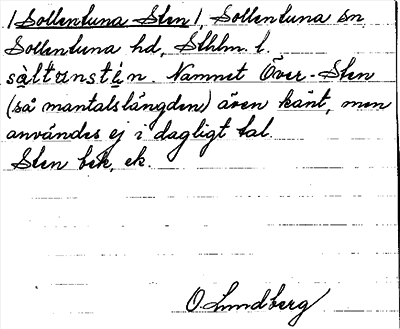 /Sollentuna Sten/, Sollentuna sn
Sollentuna hd, Sthlm. l.
Namnet Över-Sten
(så mantalslängden) även känt, men
användes ej i dagligt tal.
Sten bek, ek.
O. Lundberg